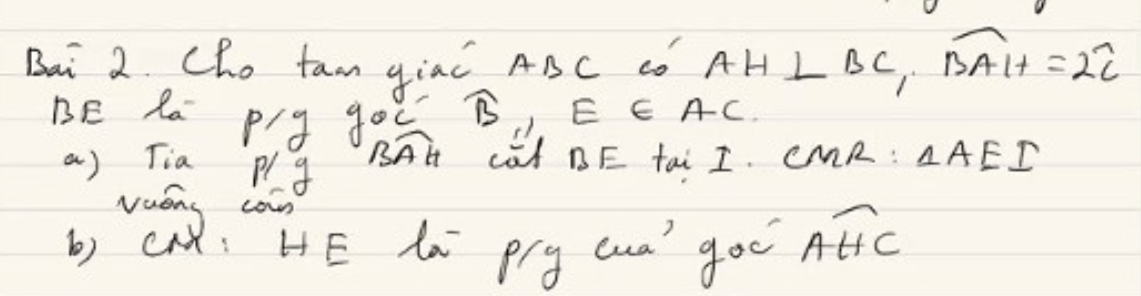 Bài 2. Cho tam giác ABC có AH ⊥ BC, \widehat{BAH} = 2\hat{C}
BE là p/g góc \widehat{B}, E ∈ AC.
a) Tia p/g \widehat{BAH} cắt BE tại I. CMR: ΔAEI
vuông cân
b) CM: HE là p/g của góc \widehat{AHC}